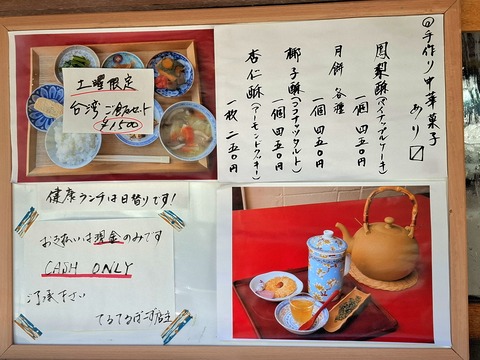 土曜限定
台湾ご飯セット
¥1500
◎手作り中華菓子
あり〼
鳳梨酥(パイナップルケーキ)
一個 四五〇円
月餅 各種
一個 四五〇円
椰子酥(ココナッツタルト)
一個 四五〇円
杏仁酥(アーモンドクッキー)
一枚 二五〇円
健康ランチは日替りです!
お支払いは現金のみです
CASH ONLY
ご了承下さい
てるてるぼーず店主